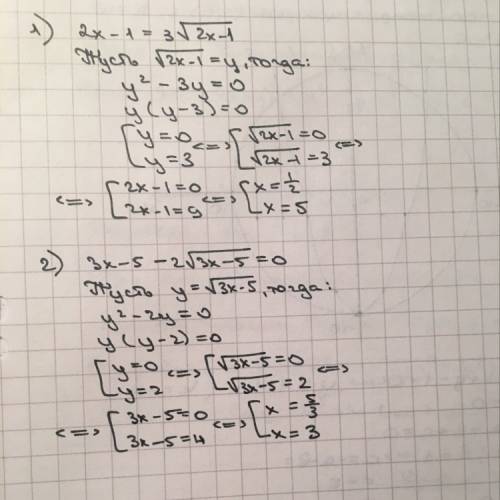 1) 2x-1 = 3√(2x-1)
Пусть √(2x-1) = y, тогда:
y² - 3y = 0
y(y-3) = 0
[y=0 <=> [√(2x-1) = 0 <=>
[y=3 [√(2x-1) = 3
<=> [2x-1=0 <=> [x=1/2
[2x-1=9 [x=5
2) 3x-5 - 2√(3x-5) = 0
Пусть y=√(3x-5), тогда:
y² - 2y = 0
y(y-2) = 0
[y=0 <=> [√(3x-5) = 0 <=>
[y=2 [√(3x-5) = 2
<=> [3x-5=0 <=> [x = 5/3
[3x-5=4 [x=3